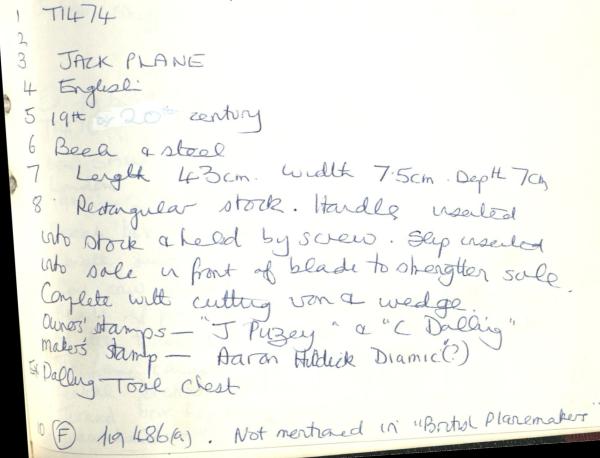 1 T1474
2
3 JACK PLANE
4 English
5 19th or 20th century
6 Beech & steel
7 Length 43cm. Width 7.5cm. Depth 7cm
8 Rectangular stock. Handle inserted
into stock & held by screw. Slip inserted
into sole in front of blade to strengthen sole.
Complete with cutting iron & wedge.
Owners' stamps — "J Puzey" & "C Dalling"
makers' stamp — Aaron Hildick Diamic (?)
Ex Dalling Tool Chest
10 (F) 119 486(a). Not mentioned in "British Planemakers"